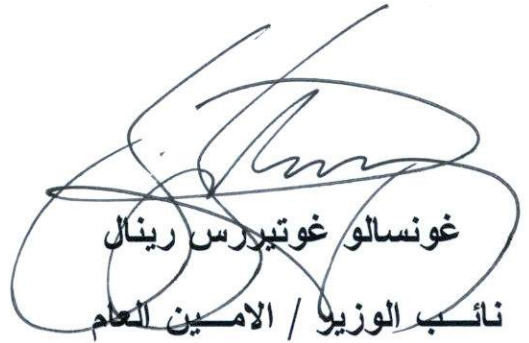 غونسالو غوتيررس رينال
نائــب الوزير / الامــين العام